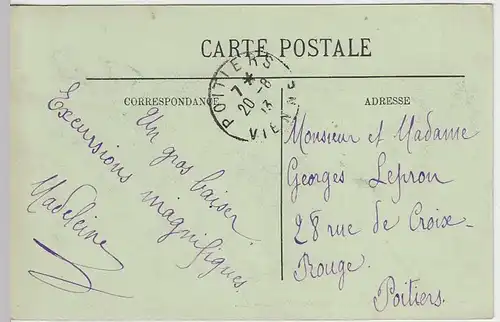 CARTE POSTALE
POITIERS
7 *
20 - 8
13
VIENNE
CORRESPONDANCE
ADRESSE
Un gros baiser.
Excursions magnifiques
Madeleine
Monsieur et Madame
Georges Lepron
28 rue de Croix-
Rouge.
Poitiers.